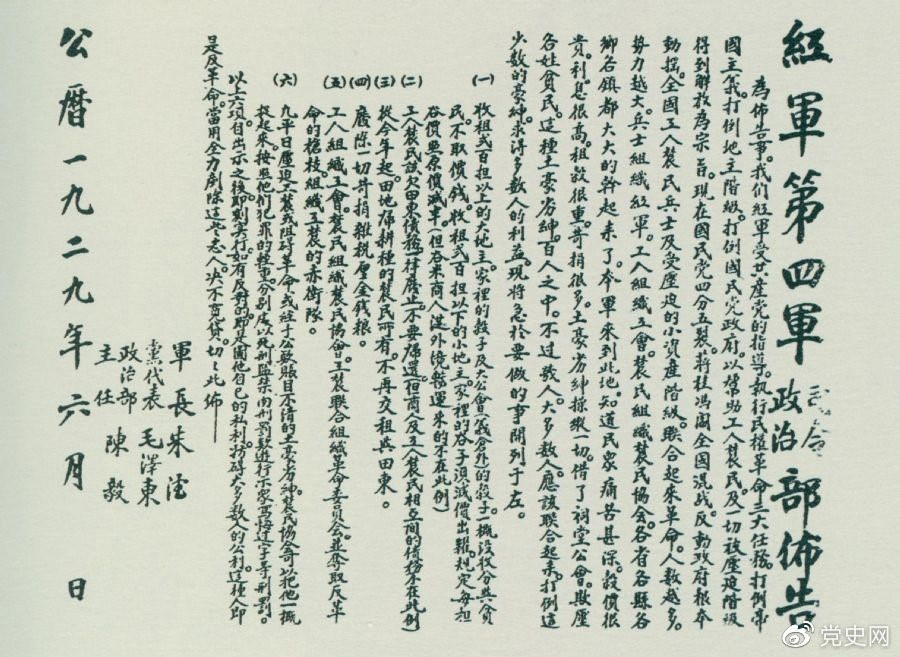 紅軍第四軍司令政治部佈告
為佈告事。我們紅軍受共產党的指導。執行民權革命三大任務。打倒帝
國主義。打倒地主階級。打倒國民党政府。以幫助工人農民。及一切被壓迫階級
得到解放為宗旨。現在國民党四分五裂。蔣桂馮閻全國混战。反動政府根本
動搖。全國工人農民兵士及受壓迫的小資產階級。聯合起來革命。人数越多。
勢力越大。兵士組織紅軍。工人組織工會。農民組織農民協会。各省各縣各
鄉各鎮都大大的幹起來了。本軍來到此地。知道民眾痛苦甚深。穀價很
貴。利息很高。租穀很重。苛捐很多。土豪劣紳操縱一切。借了祠堂公會。欺壓
各姓貧民。這種土豪劣紳。百人之中。不过数人。大多数人。應該联合起來。打倒這
少数的豪紳。求得多数人的利益。現將急於要做的事開列于左。
(一) 收租弍百担以上的大地主。家裡的穀子及大公會(義倉外)的穀子一概没收分與貧
民。不取價钱。收租弍百担以下的小地主。家裡的谷子須減價出糶。規定每担
谷價照原價減半。(但谷米商人從外境輸運來的不在此例)
(二) 工人農民該欠田東債務一律廢止。不要歸還。(但商人及工人農民相互间的債務不在此例)
(三) 從今年起。田地歸耕種的農民所有。不再交租與田東。
(四) 廢除一切苛捐雜税厘金錢粮。
(五) 工人組織工會。農民組織農民協會。工農联合組織革命委員会。並奪取反革
命的槍枝組織工農的赤衛隊。
(六) 凡平日壓迫工農或阻碍革命。或經手公款賬目不清的土豪劣紳。農民協會可以把他一概
捉起來。按照他们犯罪的輕重。分别处以死刑監禁肉刑罰款遊行示眾寫悔过字等刑罰。
以上六項自出示之後。即刻实行。如有反對的。即是圖他自己的私利。妨碍大多数人的公利。這種人即
是反革命。當用全力剷除這些人。决不寬貸。切切此佈
軍長朱德
黨代表毛澤東
政治部主任陳毅
公曆一九二九年六月 日
党史网